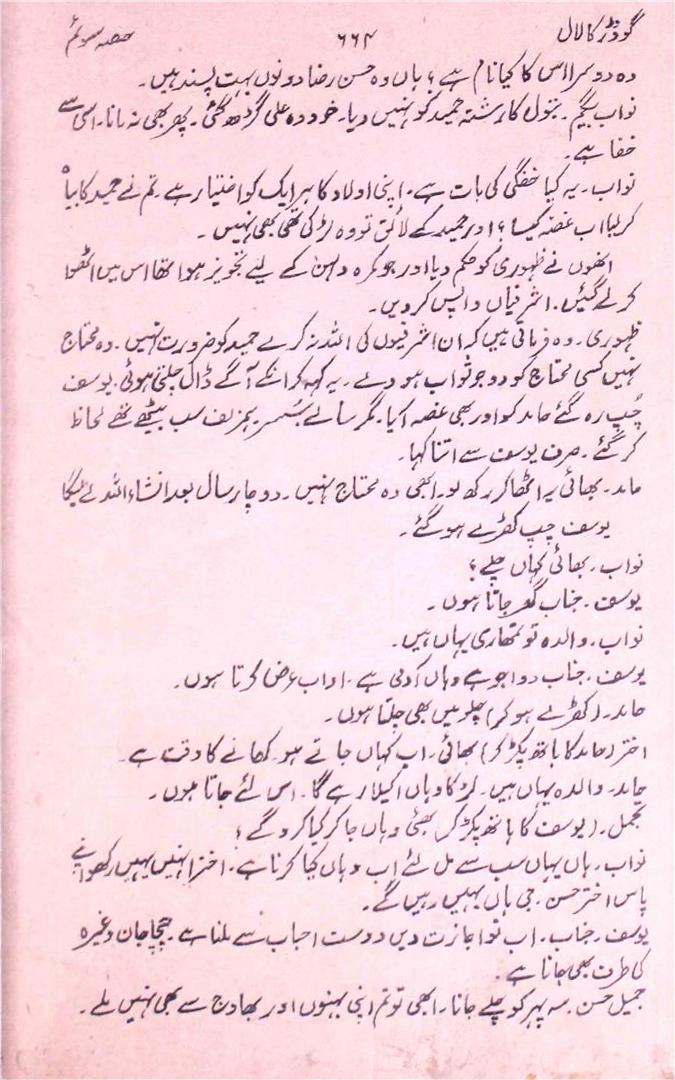 گودڑ کا لال ۶۶۴ حصہ سوئم
وہ دوسرا اس کا کیا نام ہے؟ ہاں وہ حسن رضا دونوں بہت پسند ہیں۔
نواب بیگم۔ بتول کا رشتہ حمید کو نہیں دیا۔ خود وہ علی گڈھ گئی۔ پھر بھی نہ مانا۔ اسی سے
خفا ہے۔
نواب۔ یہ کیا خفگی کی بات ہے۔ اپنی اولاد کا ہر ایک کو اختیار ہے۔ تم نے حمید کا بیاہ
کر لیا اب غصہ کیسا؟ اور حمید کے لائق تو وہ لڑکی تھی بھی نہیں۔
انھوں نے ظہوری کو حکم دیا اور جو کمرہ دلہن کے لیئے تجویز ہوا تھا اس میں اٹھوا
کر لے گئیں۔ اشرفیاں واپس کر دیں۔
ظہوری۔ وہ فرماتی ہیں کہ ان اشرفیوں کی اللہ نہ کرے حمید کو ضرورت نہیں۔ وہ محتاج
نہیں کسی محتاج کو دو جو ثواب ہووے۔ یہ کہہ کر انکے آگے ڈال چلتی ہوئی۔ یوسف
چُپ رہ گئے حامد کو اور بھی غصہ آیا۔ مگر سالے سُسر ہمزلف سب بیٹھے تھے لحاظ
کر گئے۔ صرف یوسف سے اتنا کہا۔
حامد۔ بھائی یہ اٹھا کر رکھ لو۔ ابھی وہ محتاج نہیں۔ دو چار سال بعد انشاء اللہ لے لیگا
یوسف چپ کھڑے ہو گئے۔
نواب۔ بھائی کہاں چلے؟
یوسف۔ جناب گھر جاتا ہوں۔
نواب۔ والدہ تو تمھاری یہاں ہیں۔
یوسف۔ جناب دوا جو ہے وہاں آدمی ہے۔ اداب عرض کرتا ہوں۔
حامد۔ (کھڑے ہو کر) چلو میں بھی چلتا ہوں۔
اختر (حامد کا ہاتھ پکڑ کر) بھائی۔ اب کہاں جاتے ہو۔ کھانے کا وقت ہے۔
حامد۔ والدہ یہاں ہیں۔ لڑکا وہاں اکیلا رہے گا۔ اس لئے جاتا ہوں۔
تجمل۔ (یوسف کا ہاتھ پکڑ کر) بھئی وہاں جا کر کیا کرو گے؟
نواب۔ ہاں یہاں سب سے مل لئے اب وہاں کیا کرنا ہے۔ اختر انہیں یہیں رکھو اپنے
پاس اختر حسن۔ جی ہاں یہیں رہیں گے۔
یوسف۔ جناب۔ اب تو اجازت دیں دوست احباب سے ملنا ہے۔ چچا جان وغیرہ
کی طرف بھی جانا ہے۔
جمیل حسن۔ سہ پہر کو چلے جانا۔ ابھی تو تم اپنی بہنوں اور بھاوج سے بھی نہیں ملے۔